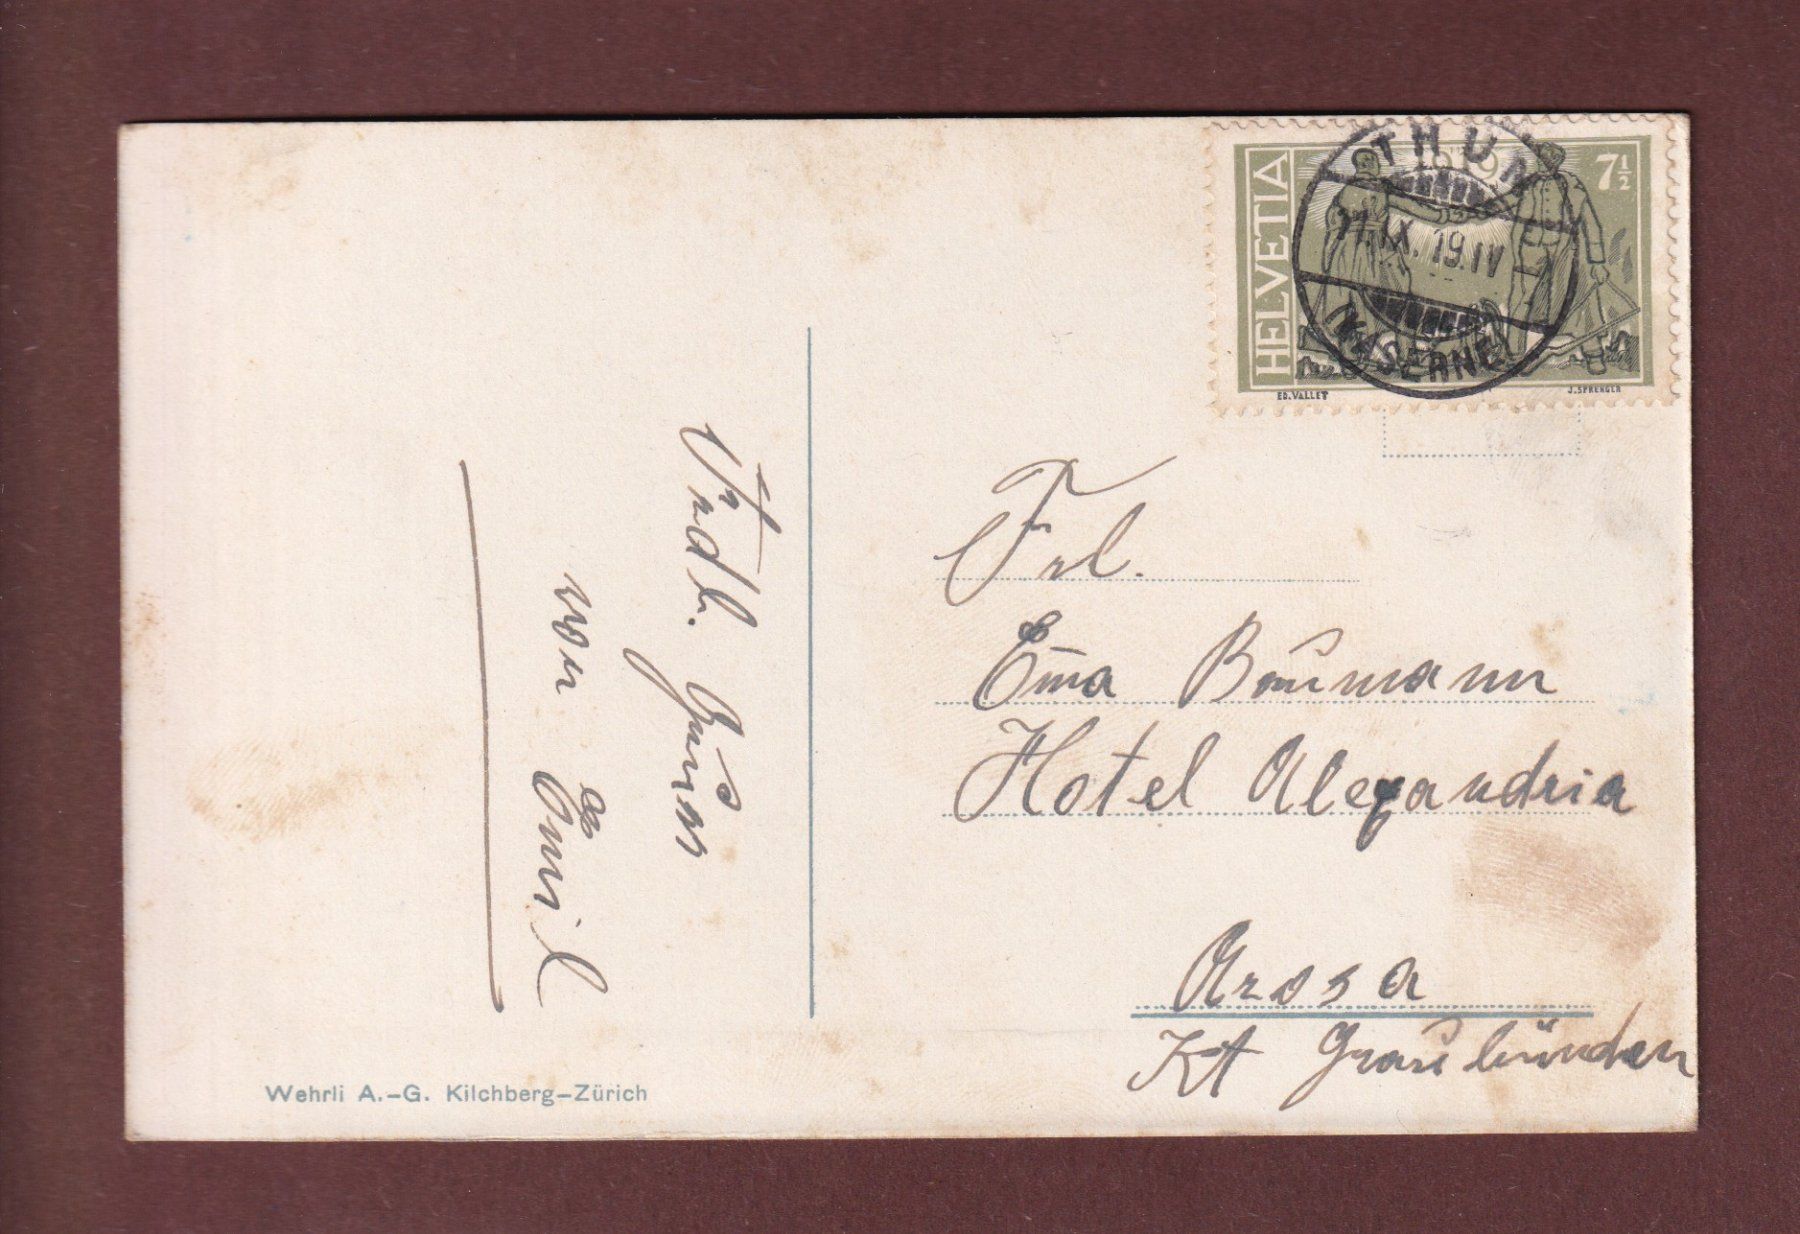 Frdl. Gruss
von Emil
Wehrli A.-G. Kilchberg-Zürich
HELVETIA
1919
7½
ED. VALLET
J. SPRENGER
THUN
11.IX.19.IV
(KASERNE)
Frl.
Ema Baumann
Hotel Alexandria
Arosa
Kt Graubünden